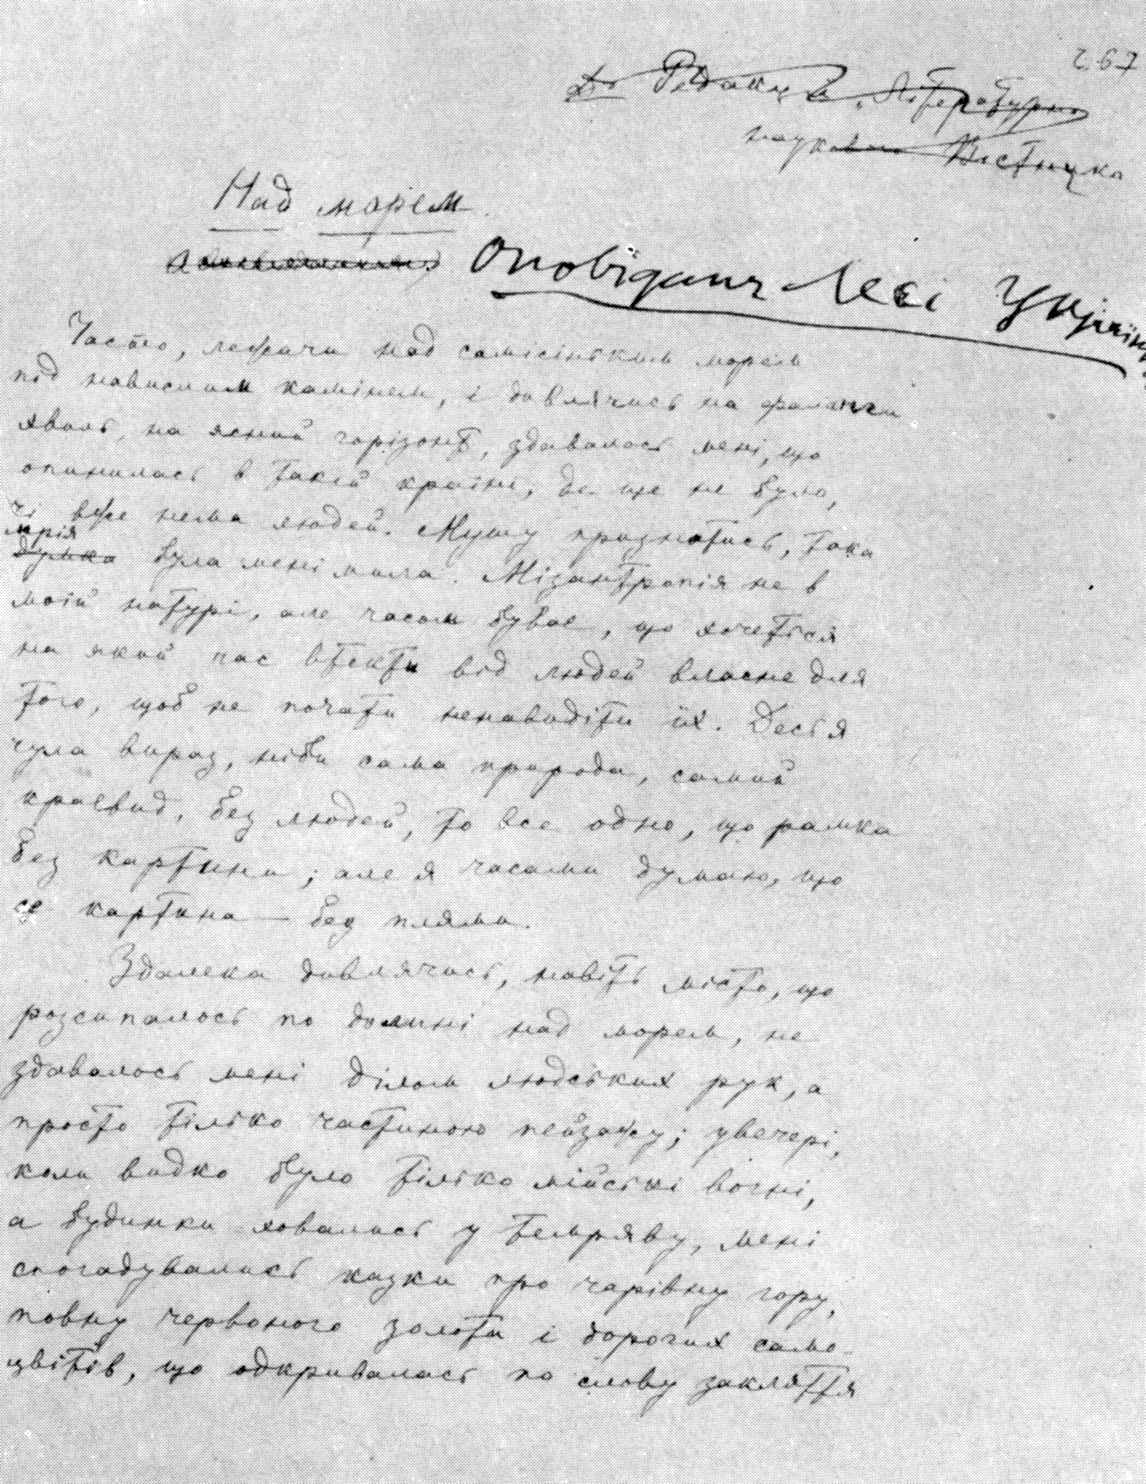 267
До Редакциї „Літературно
наукового Вістника
Над морем.
Оповіданє Лесі Українки
Часто, лежачи над самісіньким морем
під нависшим камінем, і дивлячись на фаланги
хвиль, на ясний горізонт, здавалось мені, що
опинилась в такій країні, де ще не було,
чі вже нема людей. Мушу признатись, така
мрія
думка була мені мила. Мізантропія не в
моїй натурі, але часом буває, що хочеться
на який час втекти від людей власне для
того, щоб не почати ненавидіти їх. Десь я
чула вираз, ніби сама природа, самий
краєвид, без людей, то все одно, що рамка
без картини; але я часами думаю, що
се картина — без плями.
Здалека дивлячись, навіть місто, що
розсипалось по долині над морем, не
здавалось мені ділом людських рук, а
просто тілько частиною пейзажу; увечері,
коли видко було тілько мійські вогні,
а будинки ховались у темряву, мені
спогадувались казки про чарівну гору,
повну червоного золота і дорогих само-
цвітів, що одкривалась по слову закляття